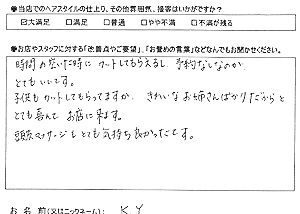 ●当店でのヘアスタイルの仕上り、その他雰囲気、接客はいかがですか?
☑大満足 □満足 □普通 □やや不満 □不満が残る
●お店やスタッフに対する「改善点やご要望」、「お誉めの言葉」などなんでもお聞かせください。
時間の空いた時に カットしてもらえるし、予約なしなのが、
とてもいいです。
子供もカットしてもらってますが、きれいなお姉さんばかりだからと
とても喜んで お店に来ます。
頭皮マッサージもとても気持ち良かったです。
お 名 前(又はニックネーム): K.Y